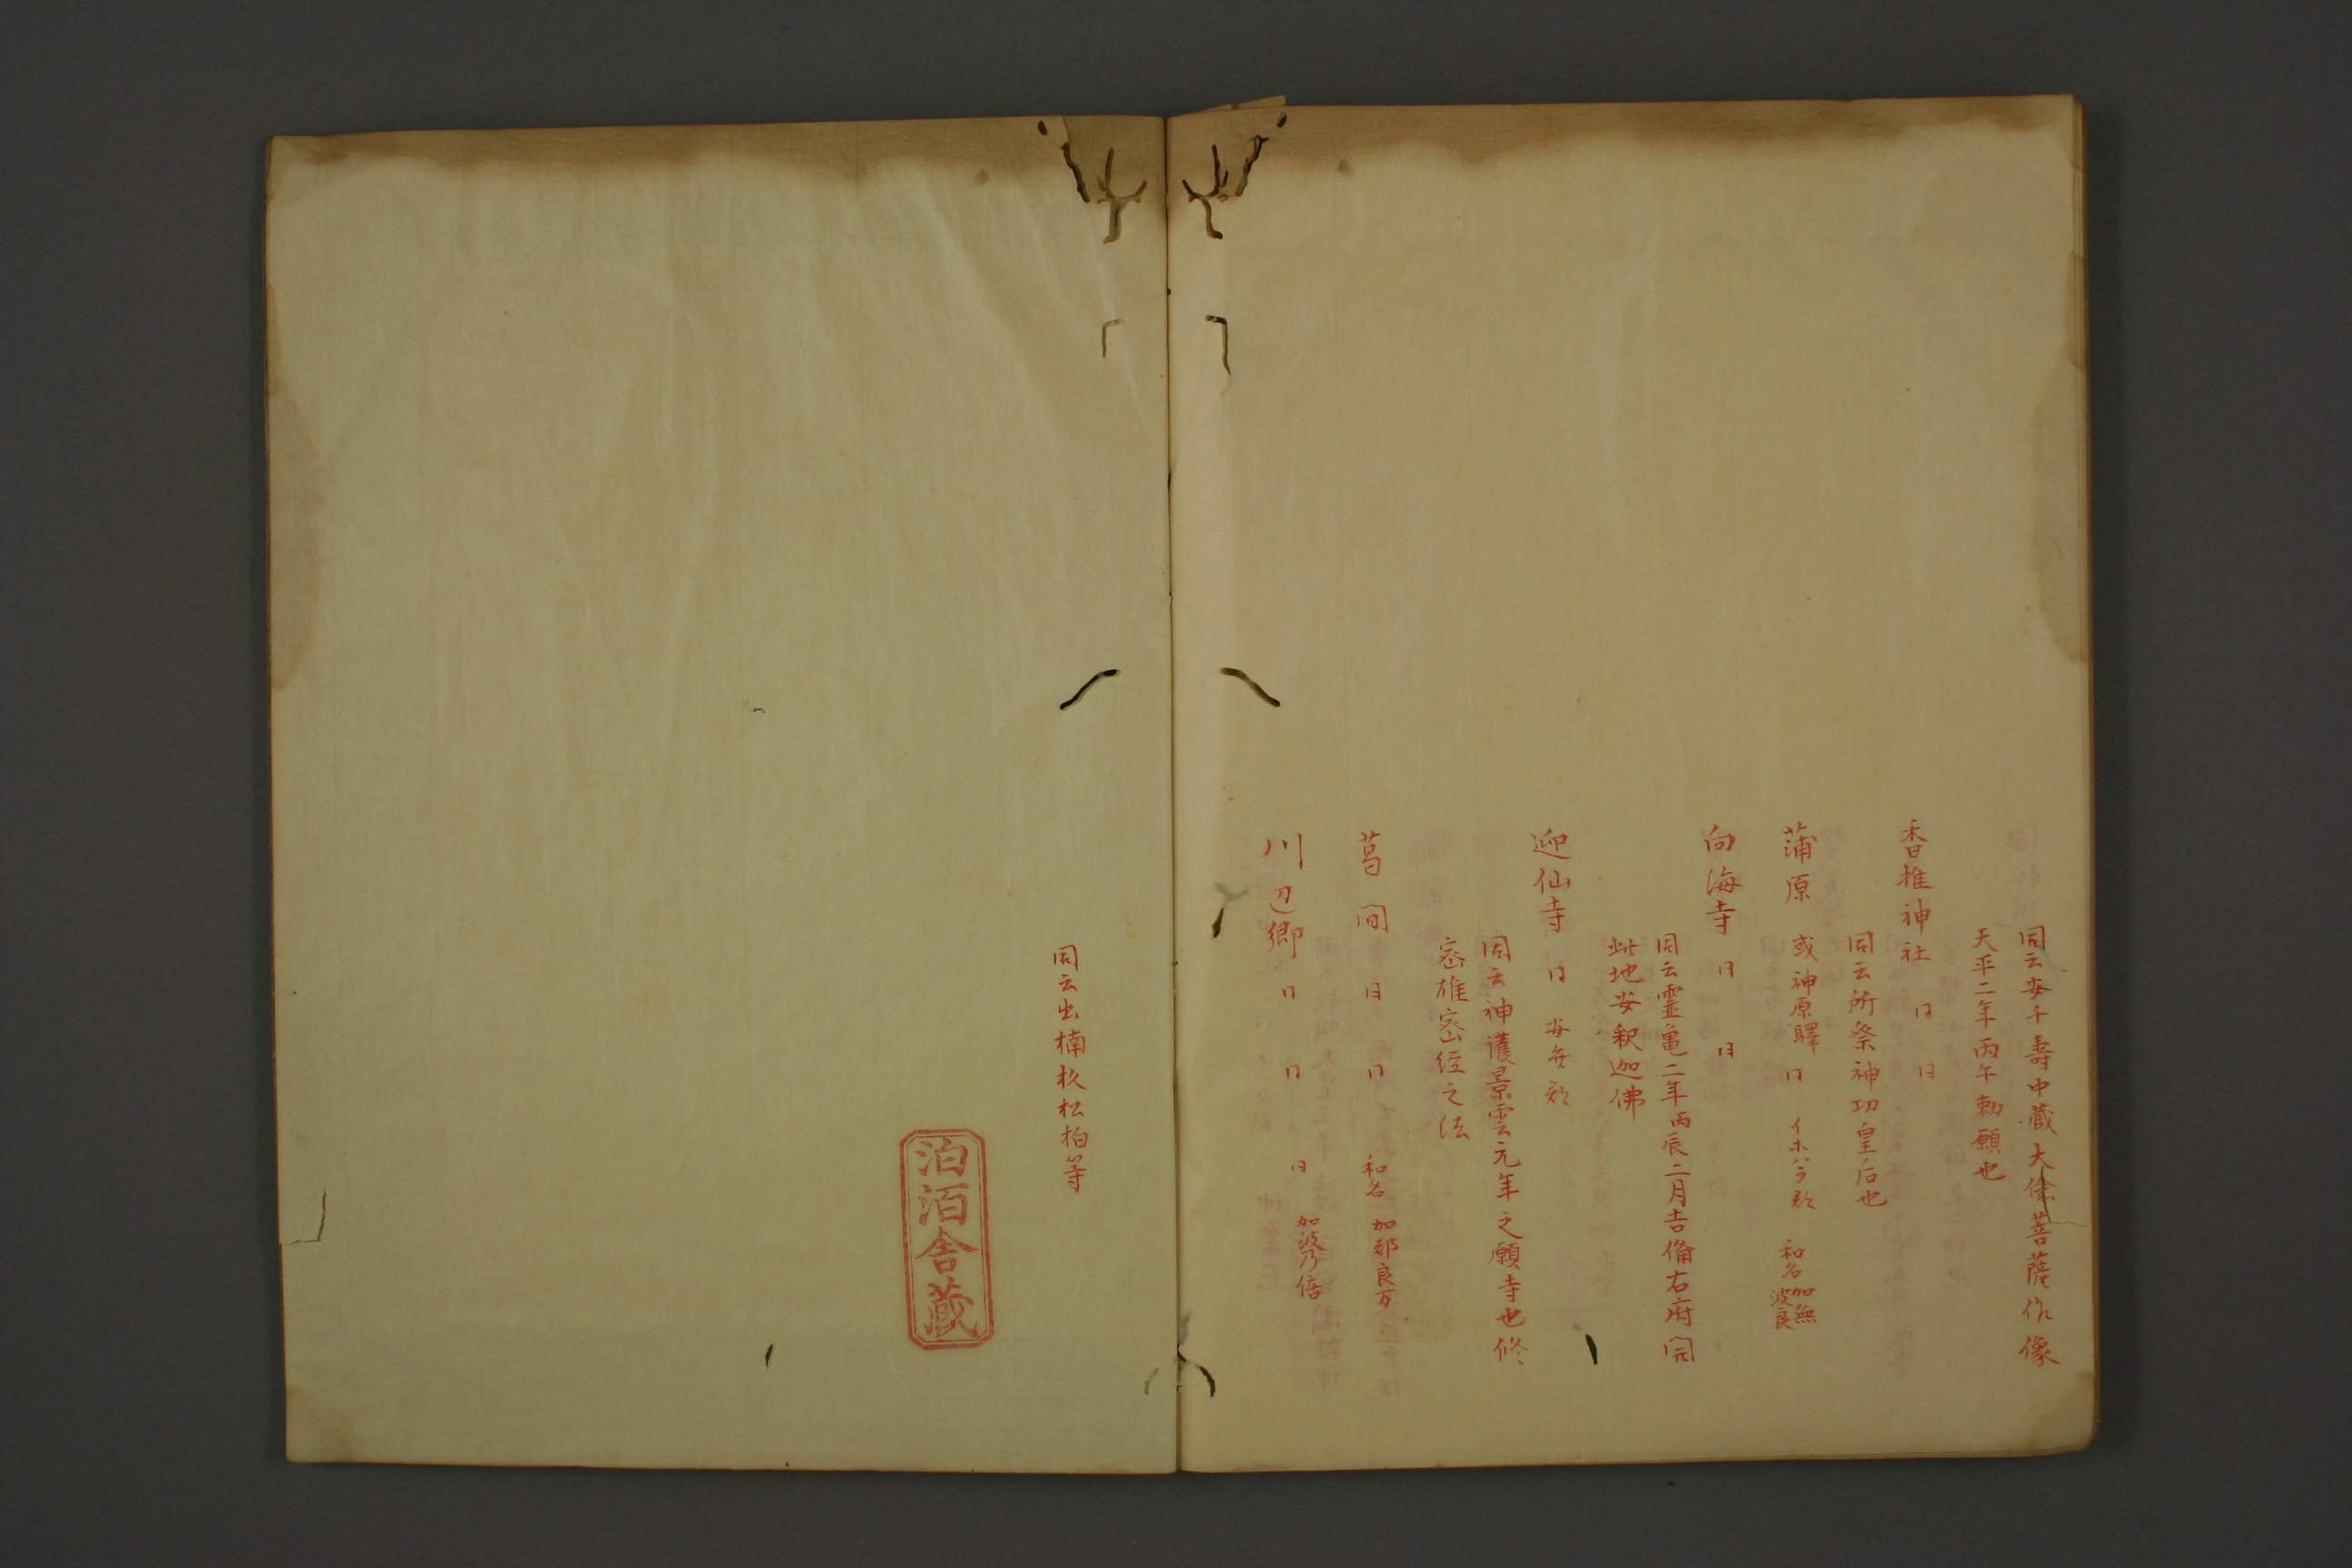 同云安千壽中蔵大余菩薩作像
天平二年丙午勅願也
香椎神社 日 日
同云所祭神功皇后也
蒲原 或神原驛 日 イホハラ歟 和名加無波良
向海寺 日 日
同云霊亀二年丙辰二月吉備右府開
此地安釈迦佛
迎仙寺 日 安弁歟
同云神護景雲元年之願寺也修
密雄密経之法
葛間 日 日 和名 加都良万
川辺郷 日 日 日 加波乃倍
同云出楠杉松柏等
泊洦舎蔵